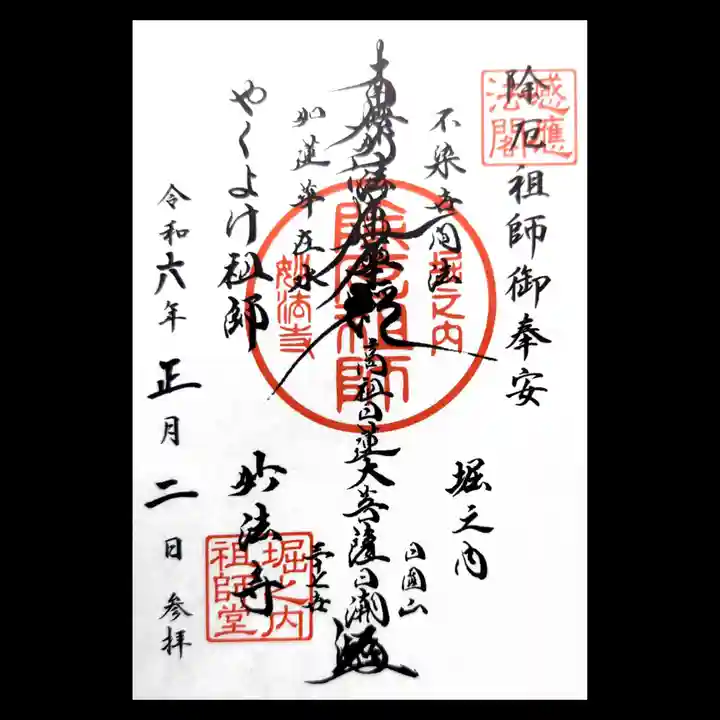 除厄祖師御奉安
感應
法閣
堀之内
不染世間法
南無妙法蓮華経
高祖日蓮大菩薩
日圓山
如蓮華在水
除厄祖師
堀之内
妙法寺
やくよけ祖師
妙法寺
堀之内
祖師堂
令和六年正月二日参拝